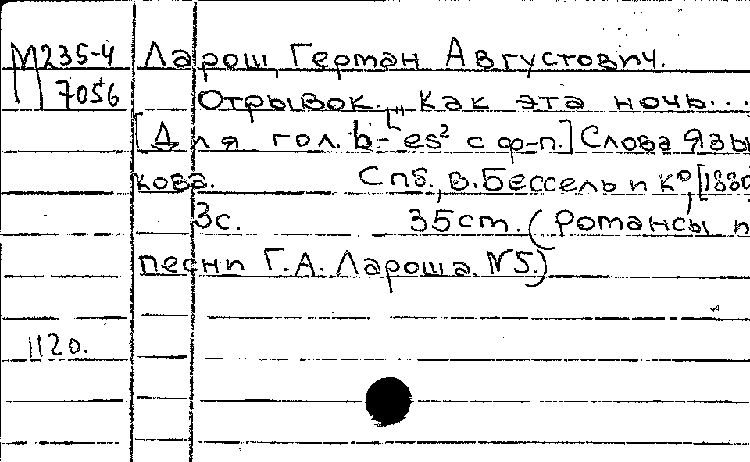 М235-4 Ларош, Герман Августович.
7056 Отрывок. "Как эта ночь...
[Для гол. b-es² с ф-п.] Слова Язы
кова. Спб., В. Бессель и К⁰, [1880
3с. 35ст. (Романсы и
песни Г.А. Лароша. №5.)
1120.